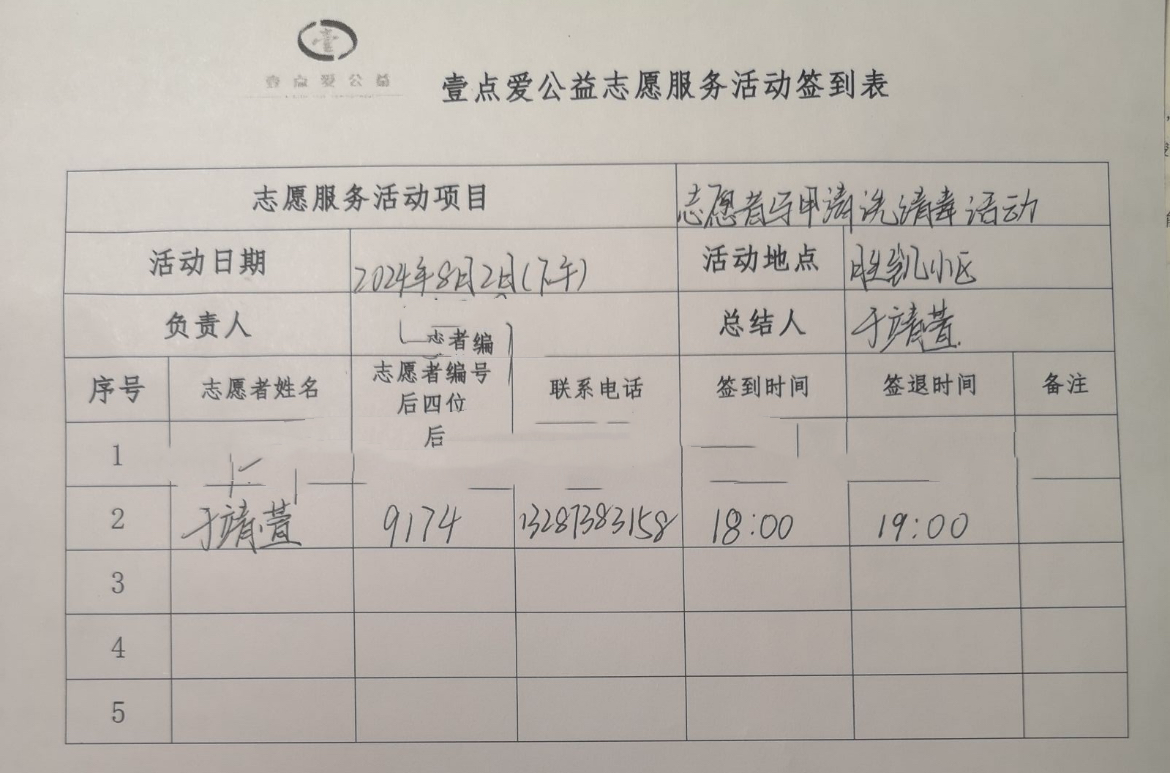 壹
壹点爱公益
壹点爱公益志愿服务活动签到表
志愿服务活动项目 志愿者与申请 活动
活动日期 2024年8月2日(下午) 活动地点 胜凯小区
负责人 总结人 于靖萱
志者编
序号 志愿者姓名 志愿者编号 联系电话 签到时间 签退时间 备注
后四位
后
1
2 于靖萱 9174 13287383158 18:00 19:00
3
4
5